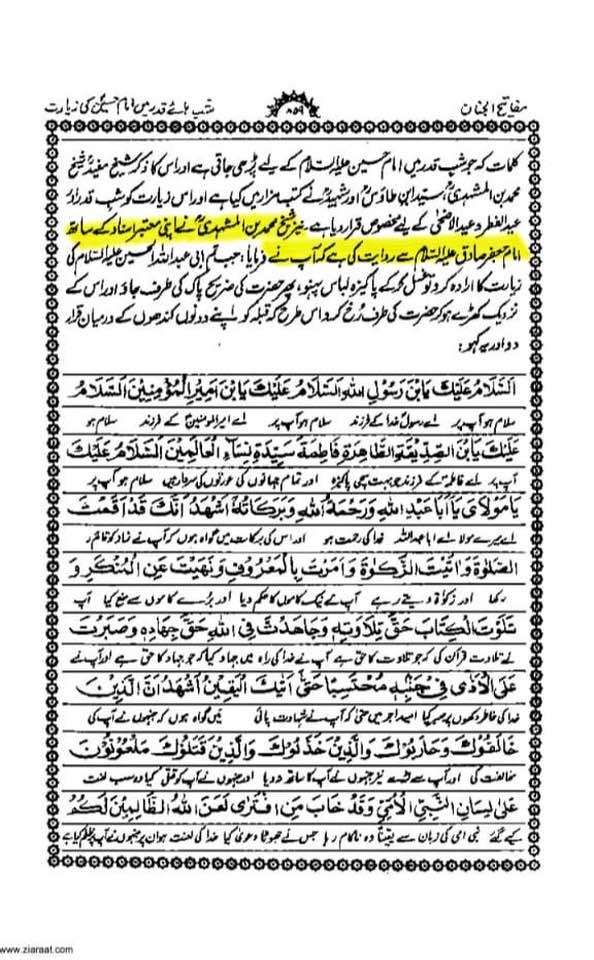 مفاتیح الجنان
۸۵۹
شب ہائے قدر میں امام حسین کی زیارت
کلمات کہ جو شب قدر میں امام حسین علیہ السلام کے لیے پڑھی جاتی ہے اور اس کا ذکر شیخ مفیدؒ شیخ
محمد بن المشہدیؒ، سید ابن طاؤسؒ اور شہیدؒ نے کتب مزار میں کیا ہے اور اس زیارت کو شب قدر اور
عید الفطر و عید الاضحیٰ کے لیے مخصوص قرار دیا ہے۔ نیز شیخ محمد بن المشہدیؒ نے اپنی معتبر اسناد کے ساتھ
امام جعفر صادق علیہ السلام سے روایت کی ہے کہ آپ نے فرمایا: جب تم ابی عبداللہ الحسین علیہ السلام کی
زیارت کا ارادہ کرو تو غسل کر کے پاکیزہ لباس پہنو، پھر حضرت کی ضریح پاک کی طرف جاؤ اور اس کے
نزدیک کھڑے ہو کر حضرت کی طرف رُخ کرو، اس طرح کہ قبلہ کو اپنے دونوں کندھوں کے درمیان قرار
دو اور یہ کہو:
اَلسَّلَامُ عَلَیْكَ یَا بْنَ رَسُوْلِ اللهِ اَلسَّلَامُ عَلَیْكَ یَا بْنَ اَمِیْرِ الْمُؤْمِنِیْنَ اَلسَّلَامُ
سلام ہو آپ پر اے رسولؐ خدا کے فرزند سلام ہو آپ پر اے امیرالمومنینؑ کے فرزند سلام ہو
عَلَیْكَ یَا بْنَ الصِّدِّیْقَةِ الطَّاهِرَةِ فَاطِمَةَ سَیِّدَةِ نِسَاءِ الْعَالَمِیْنَ اَلسَّلَامُ عَلَیْكَ
آپ پر اے فاطمہؑ کے فرزند جو بہت سچی پاکیزہ اور تمام جہانوں کی عورتوں کی سردار ہیں سلام ہو آپ پر
یَا مَوْلَایَ یَا اَبَا عَبْدِ اللهِ وَرَحْمَةُ اللهِ وَبَرَكَاتُهٗ اَشْهَدُ اَنَّكَ قَدْ اَقَمْتَ
اے میرے مولا اے ابا عبداللہ خدا کی رحمت ہو اور اس کی برکات میں گواہ ہوں کہ آپ نے نماز کو قائم
الصَّلٰوةَ وَاٰتَیْتَ الزَّكٰوةَ وَاَمَرْتَ بِالْمَعْرُوْفِ وَنَهَیْتَ عَنِ الْمُنْكَرِ وَ
رکھا اور زکوٰۃ دیتے رہے آپ نے نیک کاموں کا حکم دیا اور بُرے کاموں سے منع کیا آپ
تَلَوْتَ الْكِتَابَ حَقَّ تِلَاوَتِهٖ وَجَاهَدْتَ فِی اللهِ حَقَّ جِهَادِهٖ وَصَبَرْتَ
نے تلاوت قرآن کی کہ جو تلاوت کا حق ہے آپ نے خدا کی راہ میں جہاد کیا کہ جو جہاد کا حق ہے اور آپ نے
عَلَى الْاَذٰى فِیْ جَنْبِهٖ مُحْتَسِبًا حَتّٰى اَتٰیكَ الْیَقِیْنُ اَشْهَدُ اَنَّ الَّذِیْنَ
خدا کی خاطر دکھوں پر صبر کیا امید اجر میں حتیٰ کہ آپ نے شہادت پائی میں گواہ ہوں کہ جنہوں نے آپ کی
خَالَفُوْكَ وَحَارَبُوْكَ وَالَّذِیْنَ خَذَلُوْكَ وَالَّذِیْنَ قَتَلُوْكَ مَلْعُوْنُوْنَ
مخالفت کی اور آپ سے لڑے نیز جنہوں نے آپ کا ساتھ نہ دیا اور جنہوں نے آپ کو قتل کیا وہ سب لعنت
عَلٰى لِسَانِ النَّبِیِّ الْاُمِّیِّ وَقَدْ خَابَ مَنِ افْتَرٰى لَعَنَ اللهُ الظَّالِمِیْنَ لَكُمْ
کیے گئے نبی امی کی زبان سے یقیناً وہ ناکام رہا جس نے جھوٹا دعویٰ کیا خدا کی لعنت ہو ان پر جنہوں نے آپ پر ظلم کیا ہے
www.ziaraat.com